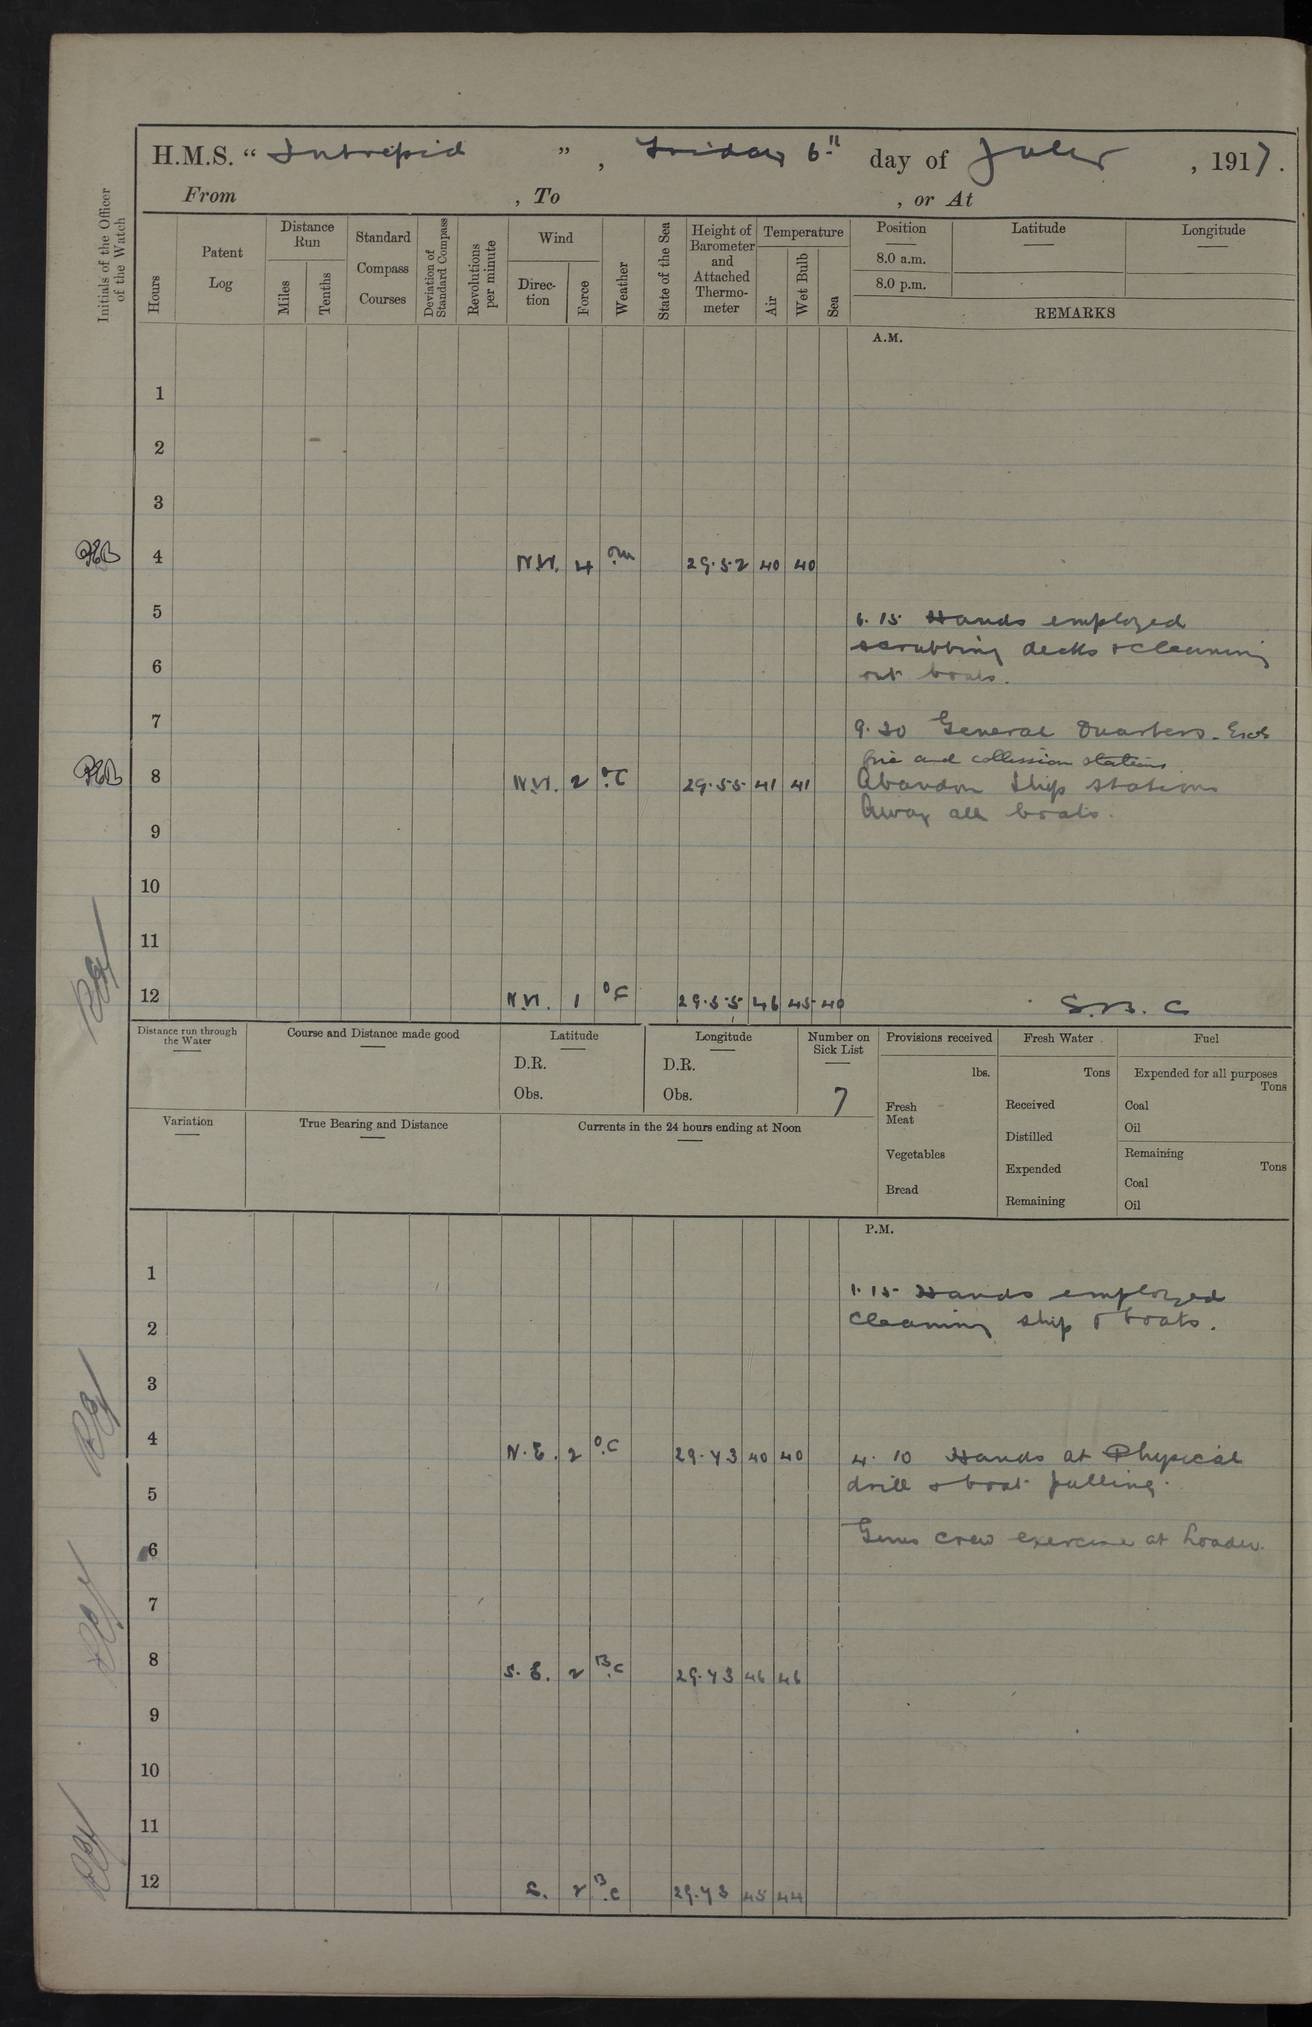 H.M.S. “ Intrepid ” , Friday 6th day of July , 1917.
From , To , or At
Initials of the Officer of the Watch
Hours
Patent Log
Distance Run
Miles
Tenths
Standard Compass Courses
Deviation of Standard Compass
Revolutions per minute
Wind
Direction
Force
Weather
State of the Sea
Height of Barometer and Attached Thermometer
Temperature
Air
Wet Bulb
Sea
Position Latitude Longitude
8.0 a.m.
8.0 p.m.
REMARKS
A.M.
1
2
3
4 N.W. 4 o.m 29.52 40 40
5 6.15 Hands employed
scrubbing decks & cleaning
6 out boats.
7 9.30 General Quarters.
fire and collission stations
8 N.W. 2 o.c 29.55 41 41 Abandon Ship stations
Away all boats.
9
10
11
12 N.W. 1 o.c 29.55 46 45 40 S.B.C
Distance run through the Water
Course and Distance made good
Latitude
D.R.
Obs.
Longitude
D.R.
Obs.
Number on Sick List
7
Provisions received
lbs.
Fresh Meat
Vegetables
Bread
Fresh Water
Tons
Received
Distilled
Expended
Remaining
Fuel
Expended for all purposes
Tons
Coal
Oil
Remaining
Tons
Coal
Oil
Variation
True Bearing and Distance
Currents in the 24 hours ending at Noon
P.M.
1 1.15 Hands employed
2 cleaning ship & boats.
3
4 N.E. 2 o.c 29.73 40 40 4.10 Hands at Physical
5 drill & boat pulling.
6 Guns crew exercise at Loader.
7
8 S.E. 2 B.c 29.73 46 46
9
10
11
12 S. 2 B.c 29.73 45 44